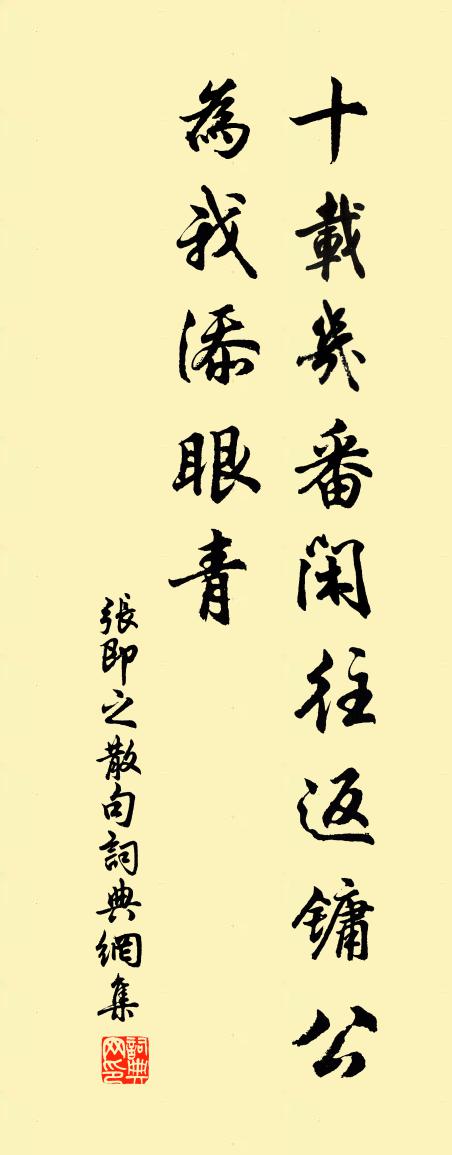 十載幾番閑往返鏞公
為我添眼青
張即之散句詞典網集
詞典网印